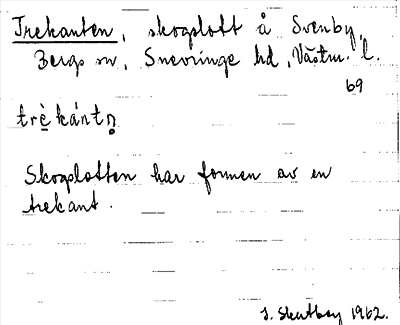 Trekanten, skogslott å Svenby,
Bergs sn, Snevringe hd, Västm. l.
69
trè káǹtn̥
Skogslotten har formen av en
trekant.
J. Skutberg 1962.